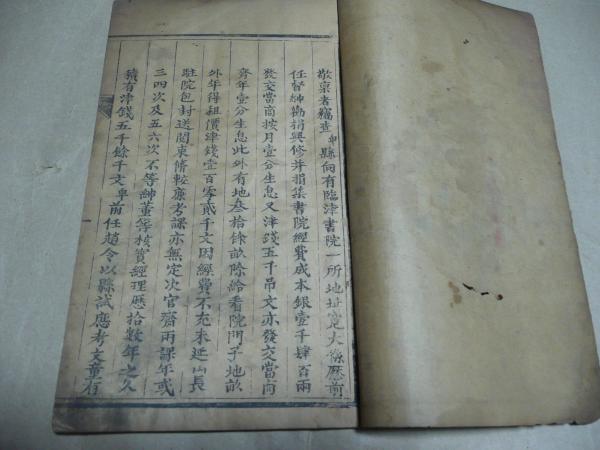 敬稟者竊查卑縣向有臨津書院一所地址寬大係歷前
任督紳勸捐興修并捐集書院經費成本銀壹千肆百兩
發交當商按月壹分生息又津錢五千吊文亦發交當商
按年壹分生息此外有地叁拾餘畝除給看院門子地畝
外年得租價津錢壹百零貳千文因經費不充未延山長
駐院包封送閱束脩較廉考課亦無定次官齋兩課年或
三四次及五六次不等紳董等核實經理歷拾數年之久
積有津錢五千餘千文卑前任趙令以縣試應考文童有